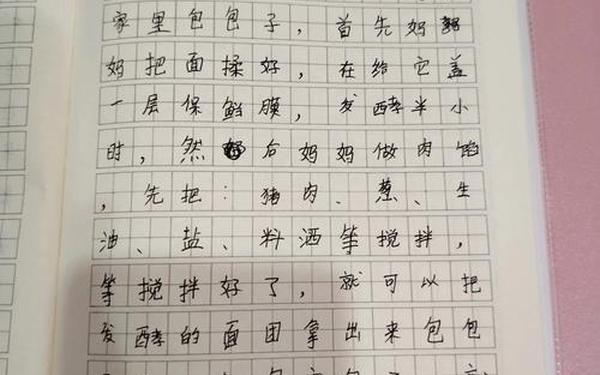 家里包包子，首先妈
妈把面揉好，在给它盖
一层保鲜膜，发酵半小
时，然后妈妈做肉馅
，先把：猪肉、葱、生
油、盐、料洒等搅拌，
等搅拌好了，就可以把
发酵的面团拿出来包包